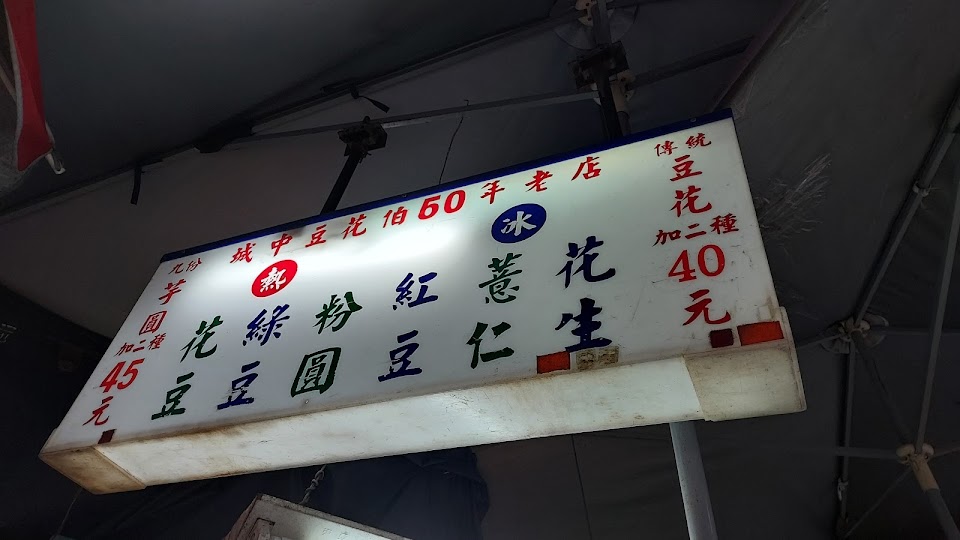 城中豆花伯50年老店
傳統
豆花
加二種
40
元
冰
花生
薏仁
紅豆
粉圓
綠豆
花豆
熱
九份
芋圓
加二種
45
元